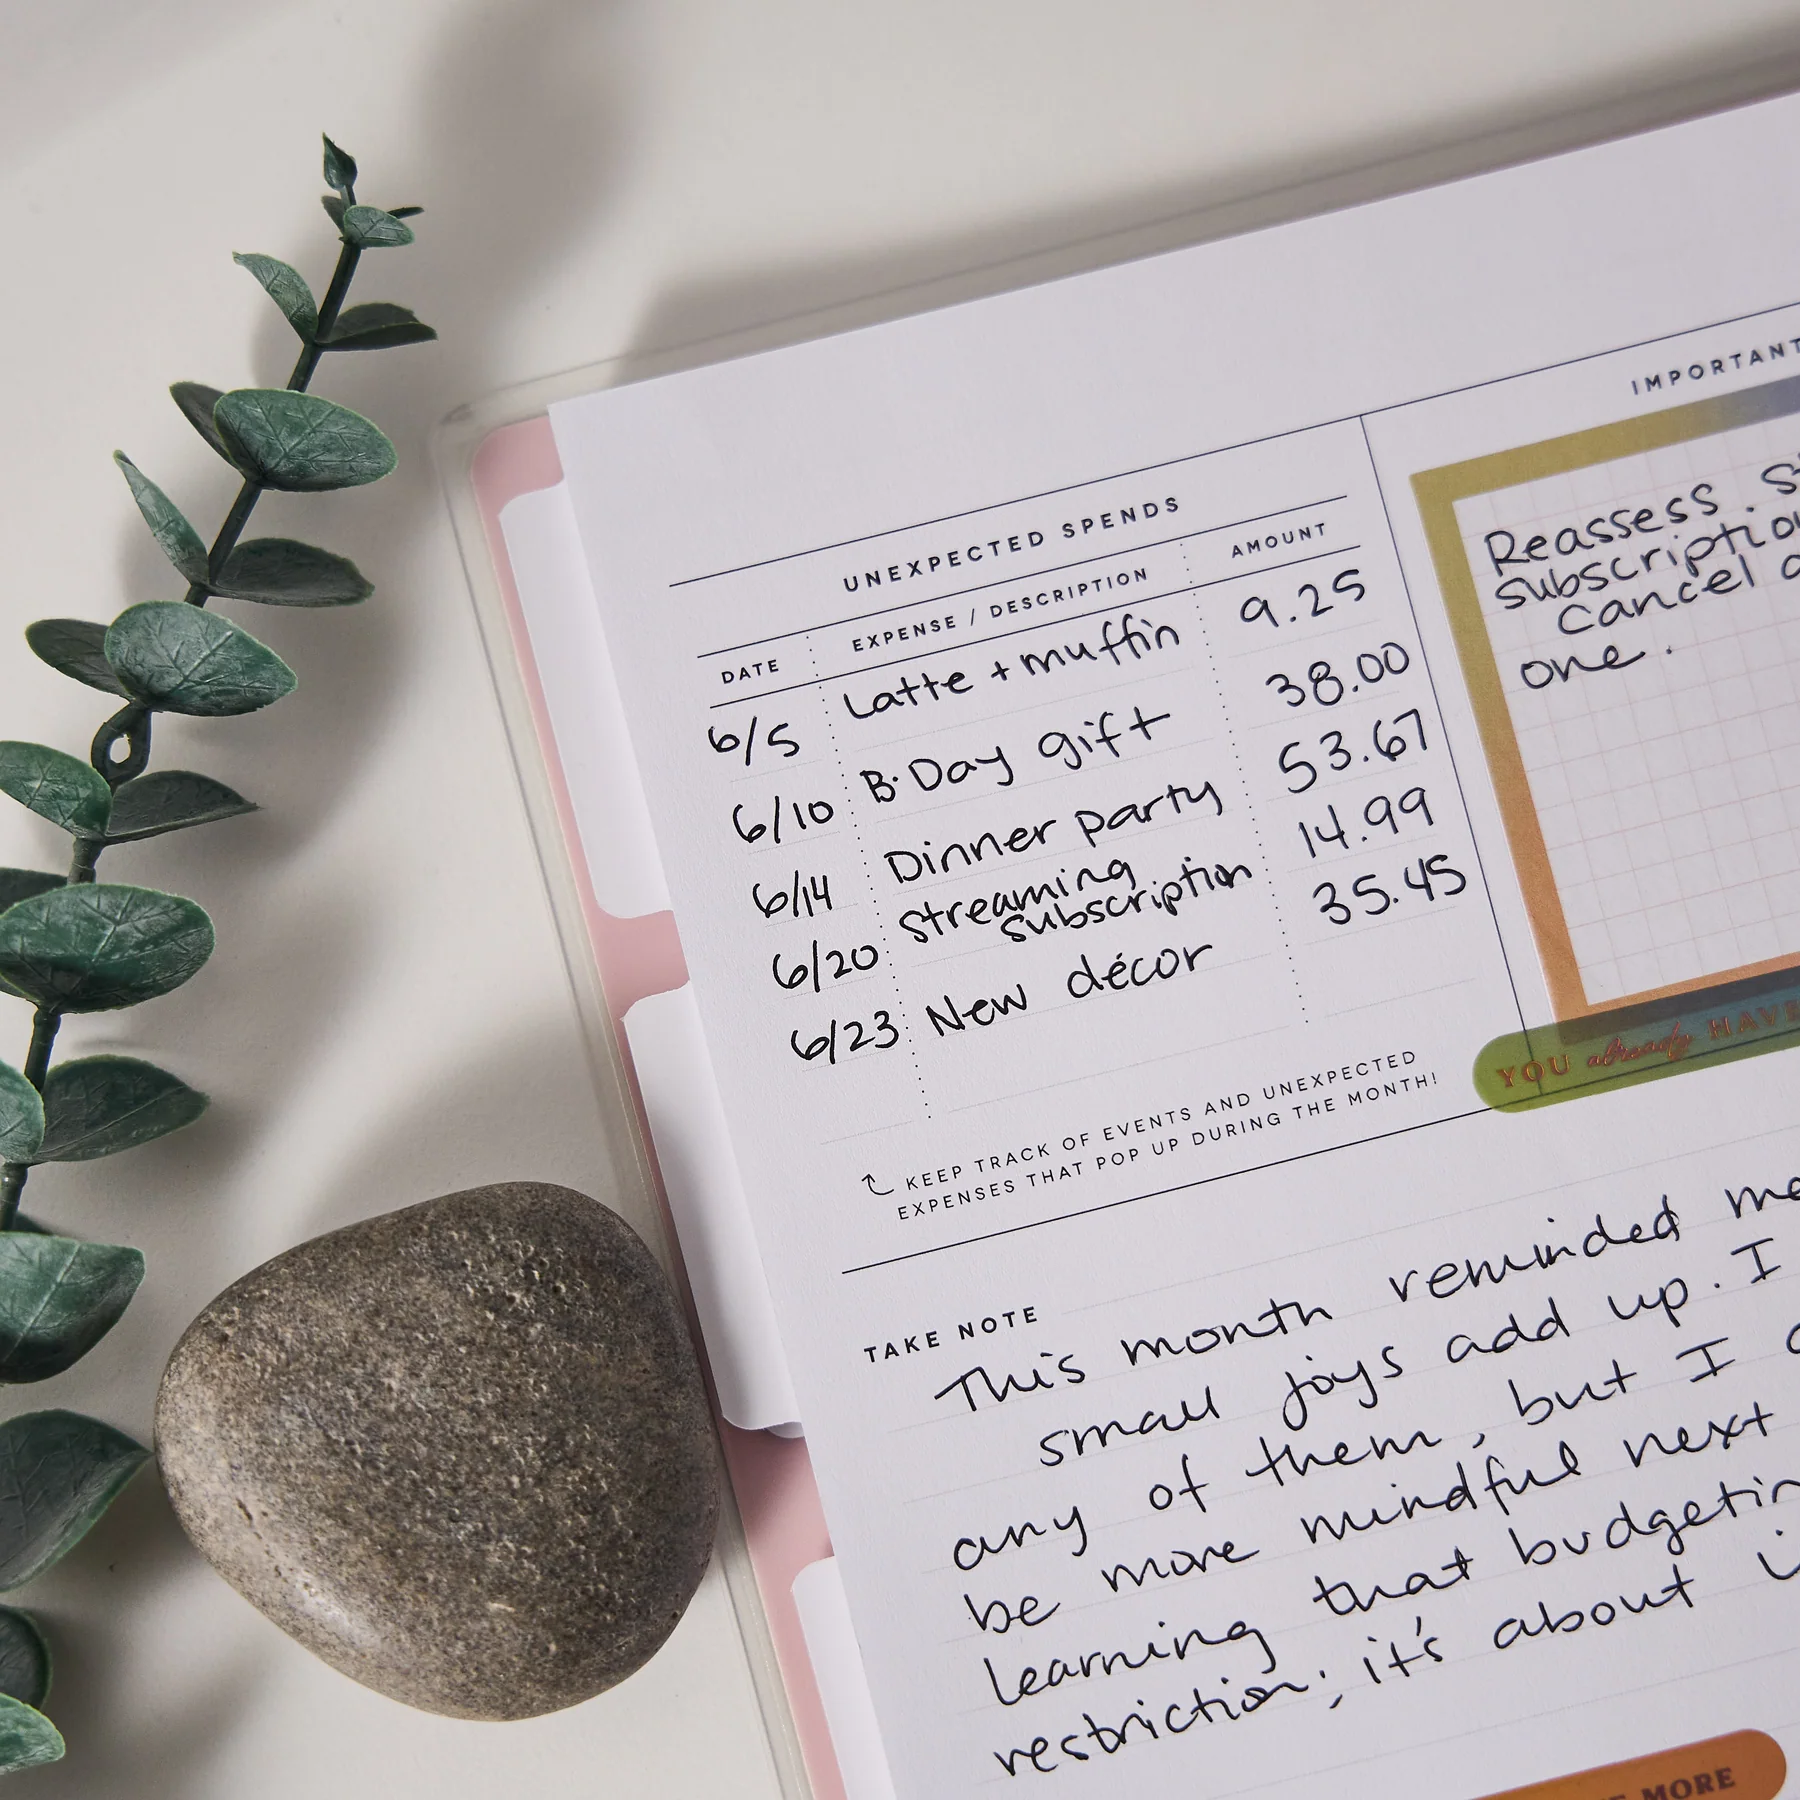 UNEXPECTED SPENDS
DATE EXPENSE / DESCRIPTION AMOUNT
6/5 Latte + muffin 9.25
6/10 B-Day gift 38.00
6/14 Dinner party 53.67
6/20 Streaming subscription 14.99
6/23 New décor 35.45
↑ KEEP TRACK OF EVENTS AND UNEXPECTED
EXPENSES THAT POP UP DURING THE MONTH!
IMPORTANT
Reassess
subscription
Cancel
one.
YOU already HAVE
TAKE NOTE
This month reminded me
small joys add up. I
any of them, but I
be more mindful next
learning that budgetin
restriction; it's about
MORE